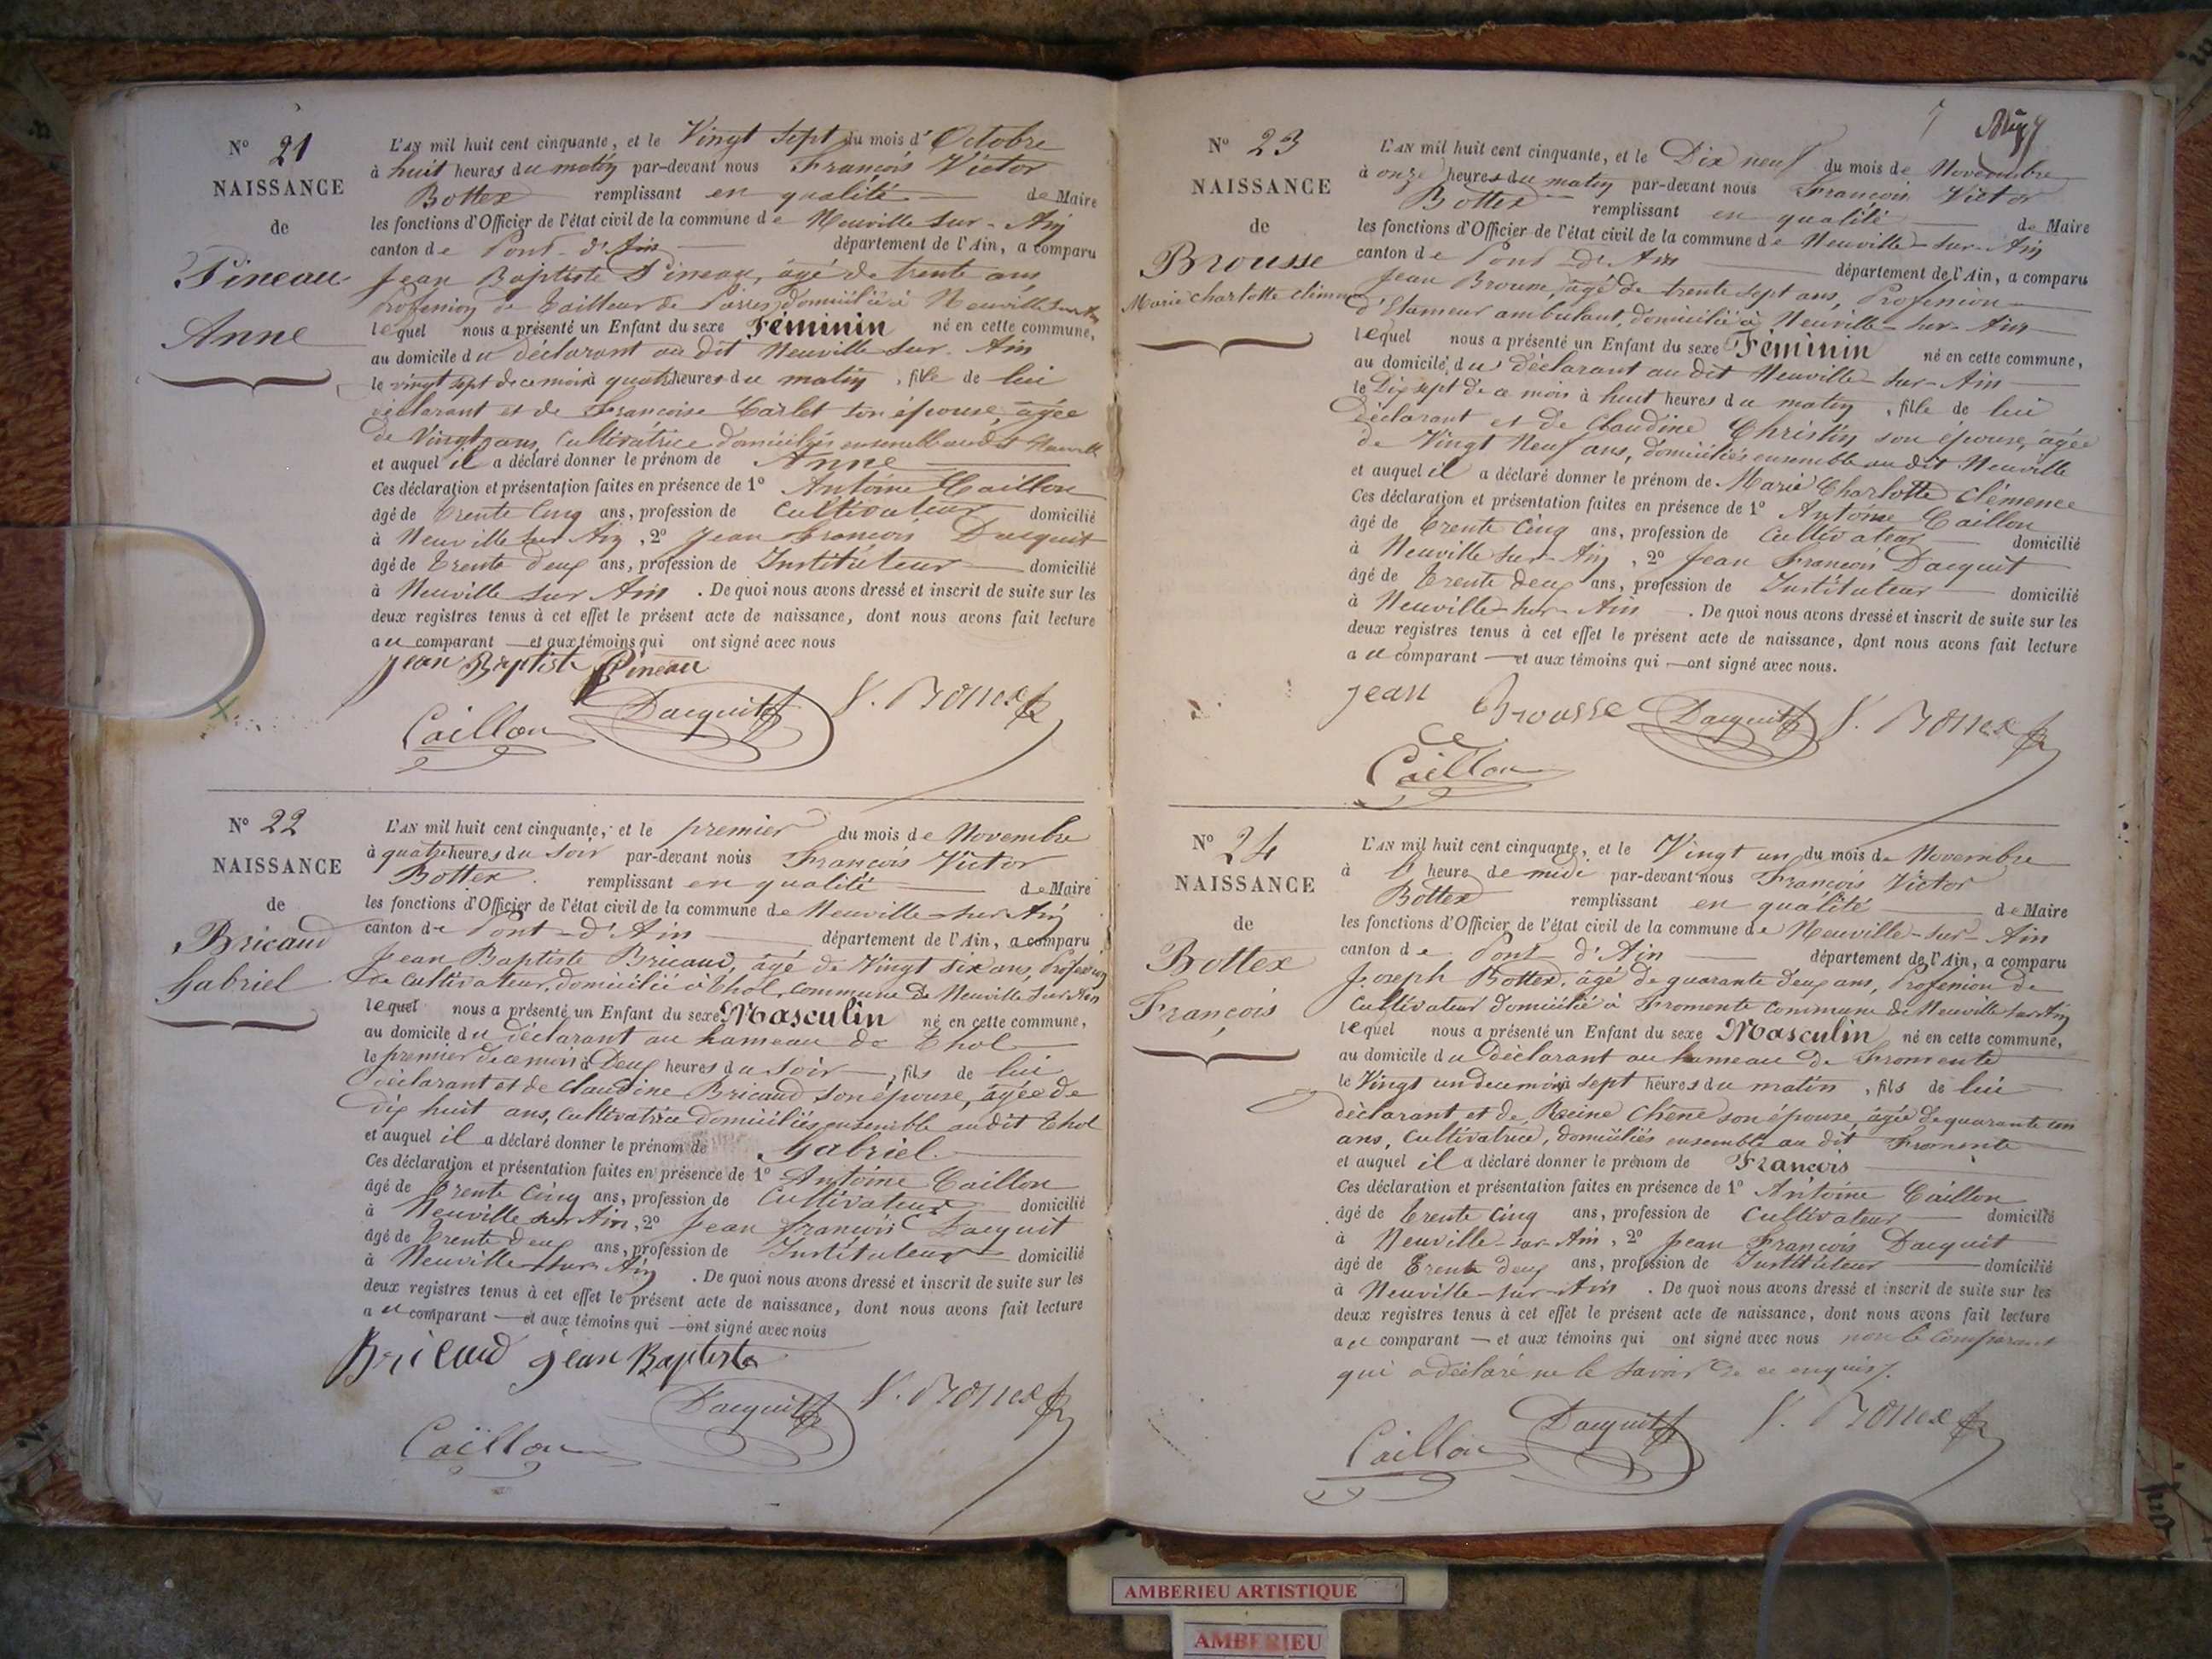 N° 21
NAISSANCE
de
Pineau
Anne
L'AN mil huit cent cinquante, et le Vingt sept du mois d'Octobre
à huit heures du matin par-devant nous François Victor
Bottex remplissant en qualité de Maire
les fonctions d'Officier de l'état civil de la commune de Neuville sur-Ain
canton de Pont-d'Ain département de l'Ain, a comparu
Jean Baptiste Pineau, âgé de trente ans
Profession de Tailleur de Pierres, domicilié à Neuville sur Ain
lequel nous a présenté un Enfant du sexe Féminin né en cette commune,
au domicile du déclarant au dit Neuville sur-Ain
le vingt sept de ce mois à quatre heures du matin, fille de lui
déclarant et de Françoise Carlet son épouse, âgée
de Vingt ans, Cultivatrice domiciliés ensemble au dit Neuville
et auquel il a déclaré donner le prénom de Anne
Ces déclaration et présentation faites en présence de 1° Antoine Caillon
âgé de Trente Cinq ans, profession de Cultivateur domicilié
à Neuville sur Ain, 2° Jean François Dacquit
âgé de Trente deux ans, profession de Instituteur domicilié
à Neuville sur Ain. De quoi nous avons dressé et inscrit de suite sur les
deux registres tenus à cet effet le présent acte de naissance, dont nous avons fait lecture
au comparant et aux témoins qui ont signé avec nous
Jean Baptiste Pineau
Caillon Dacquit V. Bottex
N° 22
NAISSANCE
de
Bricaud
Gabriel
L'AN mil huit cent cinquante, et le premier du mois de Novembre
à quatre heures du Soir par-devant nous François Victor
Bottex remplissant en qualité de Maire
les fonctions d'Officier de l'état civil de la commune de Neuville-sur Ain
canton de Pont-d'Ain département de l'Ain, a comparu
Jean Baptiste Bricaud, âgé de Vingt six ans, Profession
de Cultivateur, domicilié à Thol, Commune de Neuville sur Ain
lequel nous a présenté un Enfant du sexe Masculin né en cette commune,
au domicile du déclarant au hameau de Thol
le premier de ce mois à Deux heures du Soir, fils de lui
déclarant et de Claudine Bricaud son épouse, âgée de
Dix huit ans, Cultivatrice domiciliés ensemble au dit Thol
et auquel il a déclaré donner le prénom de Gabriel
Ces déclaration et présentation faites en présence de 1° Antoine Caillon
âgé de Trente Cinq ans, profession de Cultivateur domicilié
à Neuville sur Ain, 2° Jean François Dacquit
âgé de Trente deux ans, profession de Instituteur domicilié
à Neuville sur-Ain. De quoi nous avons dressé et inscrit de suite sur les
deux registres tenus à cet effet le présent acte de naissance, dont nous avons fait lecture
au comparant et aux témoins qui ont signé avec nous
Bricaud Jean Baptiste
Caillon Dacquit V. Bottex
7
N° 23
NAISSANCE
de
Brousse
Marie Charlotte Clémence
L'AN mil huit cent cinquante, et le Dix neuf du mois de Novembre
à onze heures du matin par-devant nous François Victor
Bottex remplissant en qualité de Maire
les fonctions d'Officier de l'état civil de la commune de Neuville-sur-Ain
canton de Pont-d'Ain département de l'Ain, a comparu
Jean Brousse, âgé de trente sept ans, Profession
d'Etameur ambulant, domicilié à Neuville-sur-Ain
lequel nous a présenté un Enfant du sexe Féminin né en cette commune,
au domicile du déclarant au dit Neuville-sur-Ain
le Dix sept de ce mois à huit heures du matin, fille de lui
déclarant et de Claudine Christin son épouse, âgée
de Vingt Neuf ans, domiciliés ensemble au dit Neuville
et auquel il a déclaré donner le prénom de Marie Charlotte Clémence
Ces déclaration et présentation faites en présence de 1° Antoine Caillon
âgé de Trente Cinq ans, profession de Cultivateur domicilié
à Neuville sur-Ain, 2° Jean François Dacquit
âgé de Trente deux ans, profession de Instituteur domicilié
à Neuville-sur-Ain. De quoi nous avons dressé et inscrit de suite sur les
deux registres tenus à cet effet le présent acte de naissance, dont nous avons fait lecture
au comparant et aux témoins qui ont signé avec nous.
Jean Brousse Dacquit V. Bottex
Caillon
N° 24
NAISSANCE
de
Bottex
François
L'AN mil huit cent cinquante, et le Vingt un du mois de Novembre
à l'heure de midi par-devant nous François Victor
Bottex remplissant en qualité de Maire
les fonctions d'Officier de l'état civil de la commune de Neuville-sur-Ain
canton de Pont d'Ain département de l'Ain, a comparu
Joseph Bottex, âgé de quarante deux ans, Profession de
Cultivateur domicilié à Fromente Commune de Neuville sur Ain
lequel nous a présenté un Enfant du sexe Masculin né en cette commune,
au domicile du déclarant au hameau de Fromente
le Vingt un de ce mois à sept heures du matin, fils de lui
déclarant et de Reine Chêne son épouse, âgée de quarante un
ans, Cultivatrice, domiciliés ensemble au dit Fromente
et auquel il a déclaré donner le prénom de François
Ces déclaration et présentation faites en présence de 1° Antoine Caillon
âgé de Trente Cinq ans, profession de Cultivateur domicilié
à Neuville-sur-Ain, 2° Jean François Dacquit
âgé de Trente deux ans, profession de Instituteur domicilié
à Neuville-sur-Ain. De quoi nous avons dressé et inscrit de suite sur les
deux registres tenus à cet effet le présent acte de naissance, dont nous avons fait lecture
au comparant et aux témoins qui ont signé avec nous non le Comparant
qui a déclaré ne le savoir de ce enquis.
Caillon Dacquit V. Bottex
AMBERIEU ARTISTIQUE
AMBERIEU